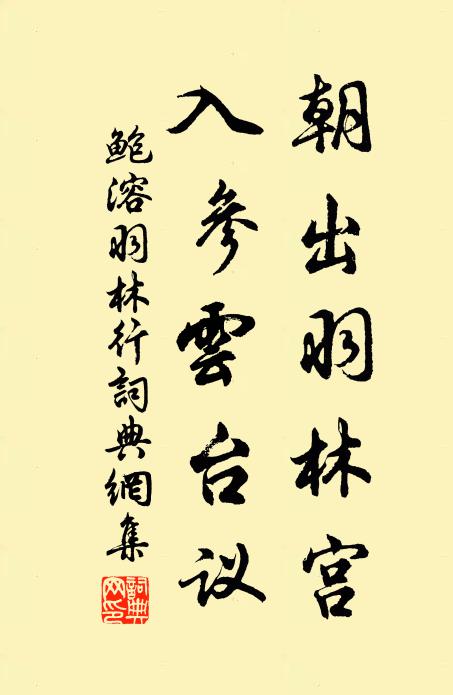 朝出羽林宫
入參雲台议
鲍溶羽林行詞典網集
詞典网印